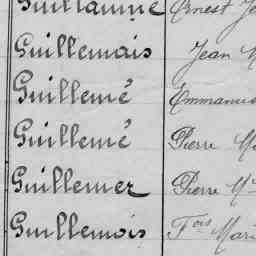 Guillaume Ernest
Guillemais Jean
Guillemé Emmanuel
Guillemé Pierre
Guillemer Pierre
Guillemois Fois Mari